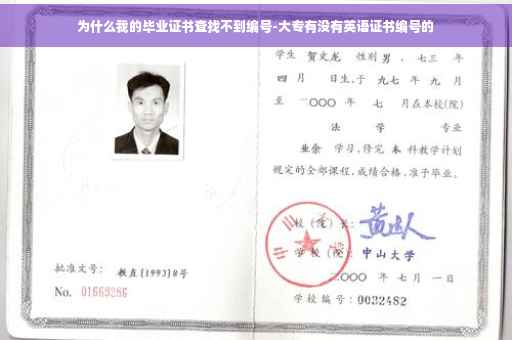 为什么我的毕业证书查找不到编号-大专有没有英语证书编号的
学生 贺文龙 性别 男 、七三 年
四 月 日生,于 九七 年 九 月
至 二〇〇〇 年 七 月在本校(院)
法 学 专业
业余 学习,修完 本 科教学计划
规定的全部课程,成绩合格,准予毕业。
校(院)长:
学校(院): 中山大学
二〇〇〇 年 七 月 一 日
学校编号: 0032482
批准文号: 教直[1993]8号
No. 01669286